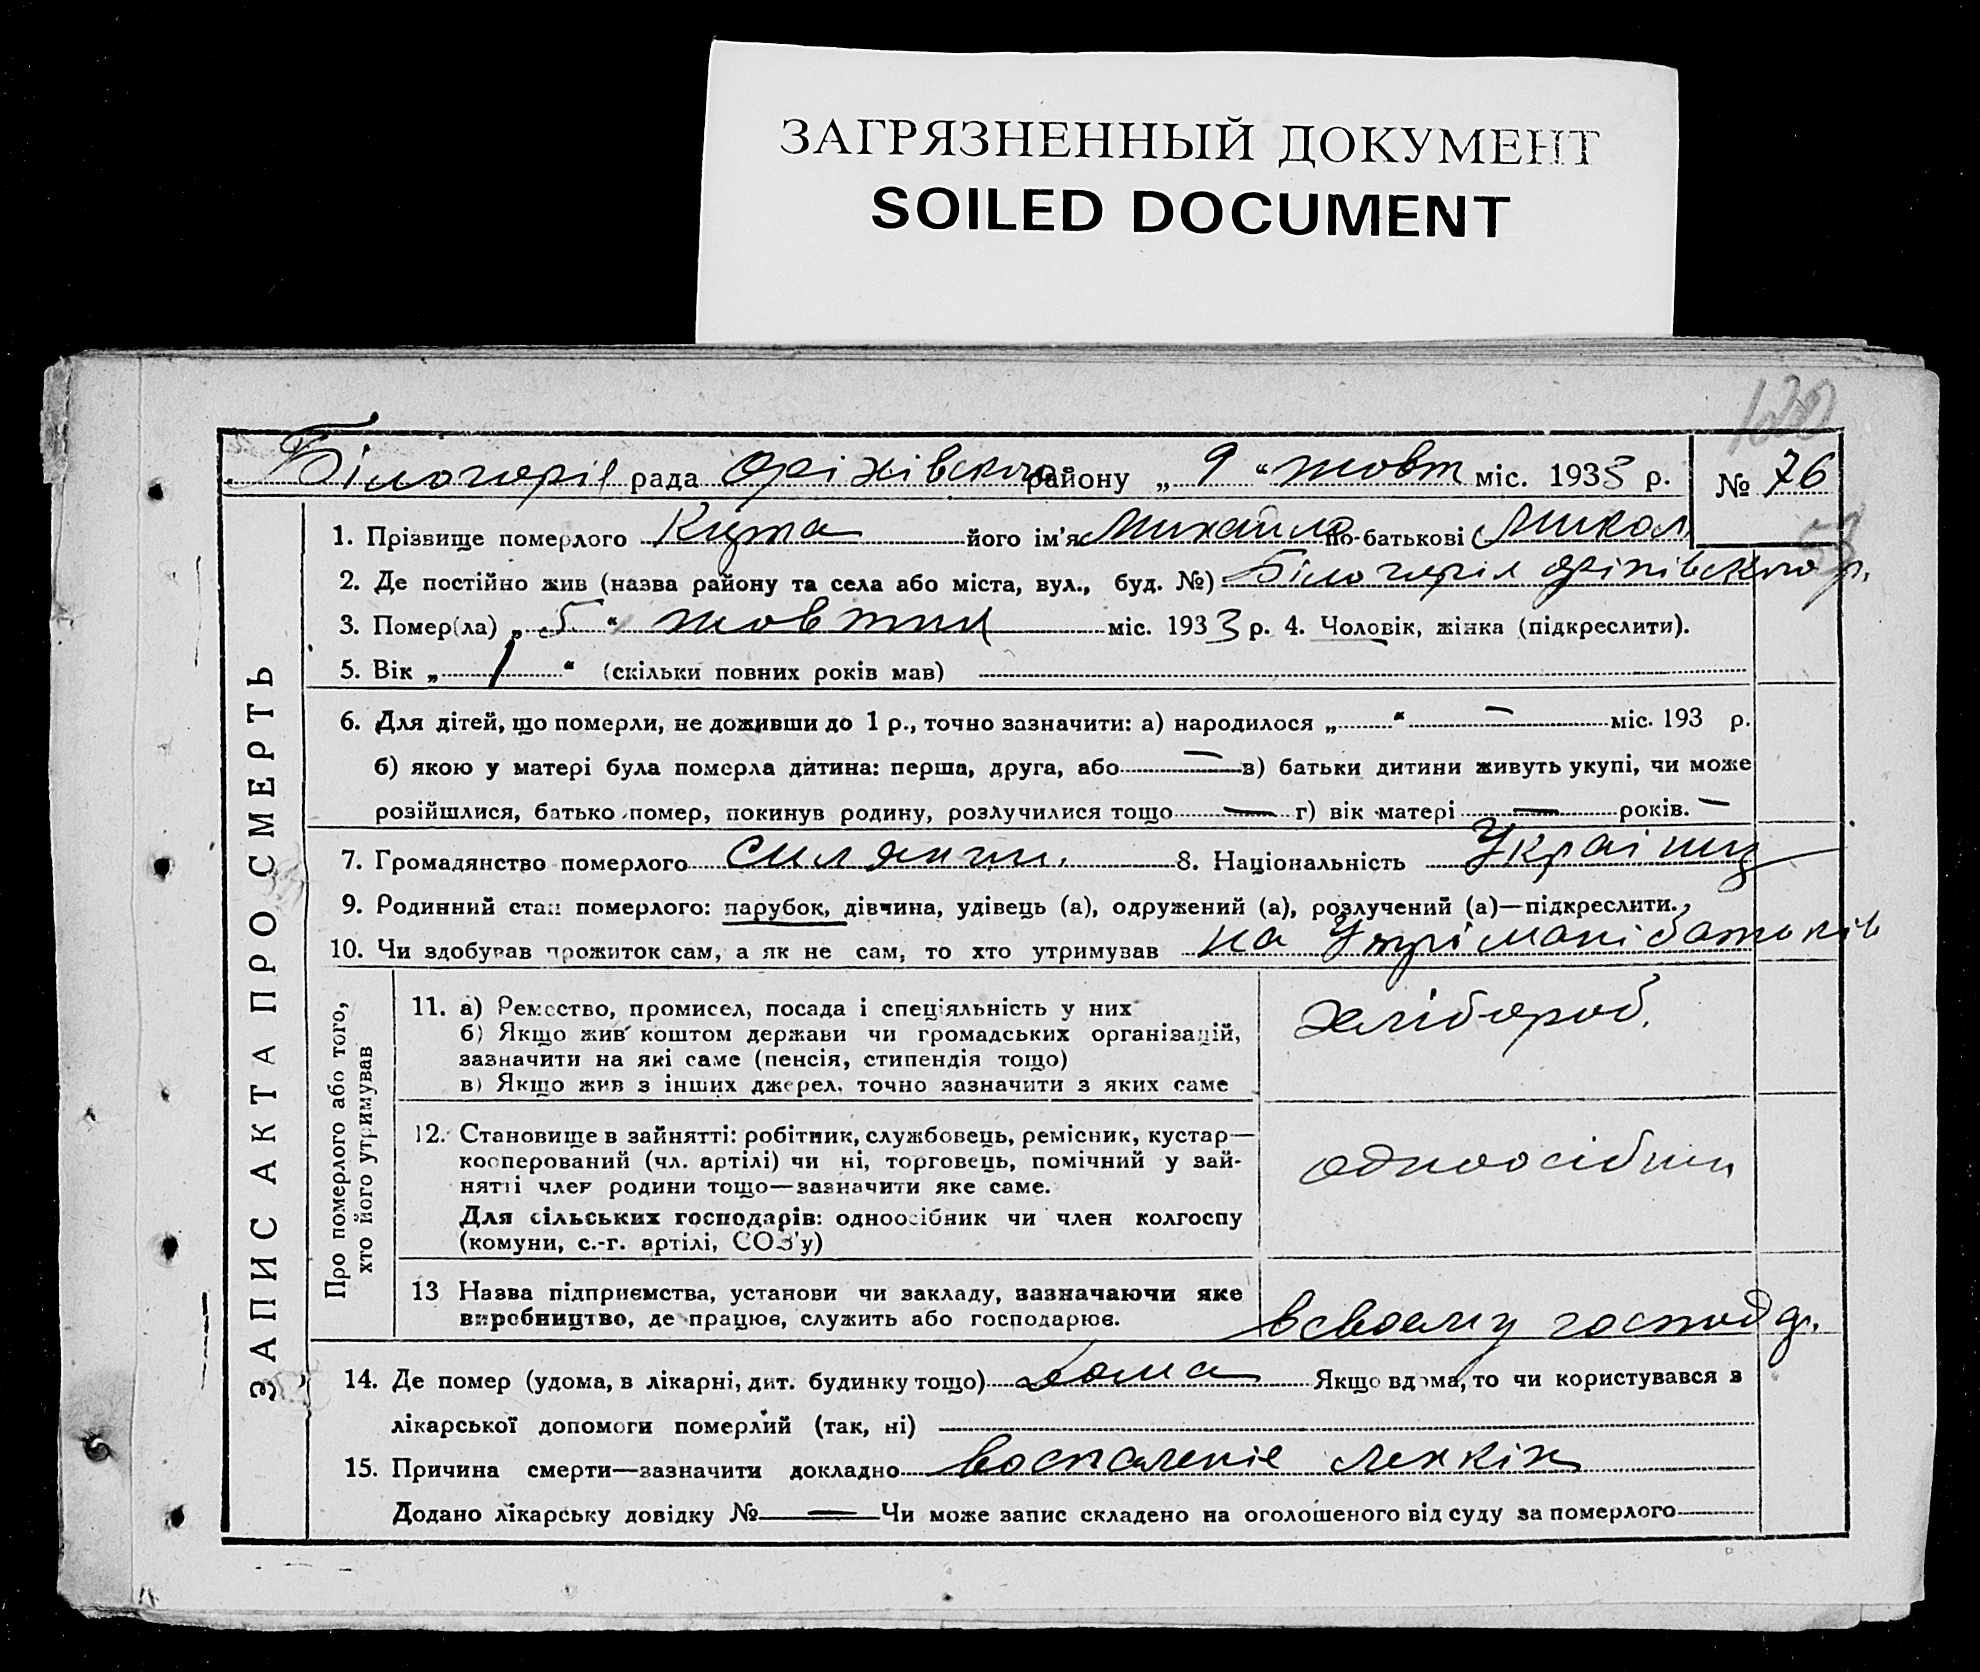 ЗАГРЯЗНЕННЫЙ ДОКУМЕНТ
SOILED DOCUMENT
Білогоріє рада Оріхівского району „ 9 “ жовт міс. 1933 р. № 76
1. Прізвище померлого його ім'я Михайло по-батькові Микол
2. Де постійно жив (назва району та села або міста, вул., буд. №) Білогоріє Оріхівского р.
3. Помер(ла) „ 5 “ жовтня міс. 1933 р. 4. Чоловік, жінка (підкреслити).
5. Вік „ 1 “ (скільки повних років мав)
6. Для дітей, що померли, не доживши до 1 р., точно зазначити: а) народилося „ “ — міс. 193 р.
б) якою у матері була померла дитина: перша, друга, або — в) батьки дитини живуть укупі, чи може
розійшлися, батько помер, покинув родину, розлучилися тощо — г) вік матері — років. —
7. Громадянство померлого 8. Національність Україниц
9. Родинний стан померлого: парубок, дівчина, удівець (а), одружений (а), розлучений (а)—підкреслити.
10. Чи здобував прожиток сам, а як не сам, то хто утримував на утрімані батьків
ЗАПИС АКТА ПРО СМЕРТЬ
Про померлого або того,
хто його утримував
11. а) Ремество, промисел, посада і спеціяльність у них
б) Якщо жив коштом держави чи громадських організацій,
зазначити на які саме (пенсія, стипендія тощо)
в) Якщо жив з інших джерел, точно зазначити з яких саме
хлібороб.
12. Становище в зайнятті: робітник, службовець, ремісник, кустар—
кооперований (чл. артілі) чи ні, торговець, помічний у зай-
нятті член родини тощо—зазначити яке саме.
Для сільських господарів: одноосібник чи член колгоспу
(комуни, с.-г. артілі, СОЗ'у)
одноосібник
13 Назва підприємства, установи чи закладу, зазначаючи яке
виробництво, де працює, служить або господарює.
в своему господар.
14. Де помер (удома, в лікарні, дит. будинку тощо) дома Якщо вдома, то чи користувався з
лікарської допомоги померлий (так, ні)
15. Причина смерти—зазначити докладно воспаленіе легкіх
Додано лікарську довідку № — Чи може запис складено на оголошеного від суду за померлого